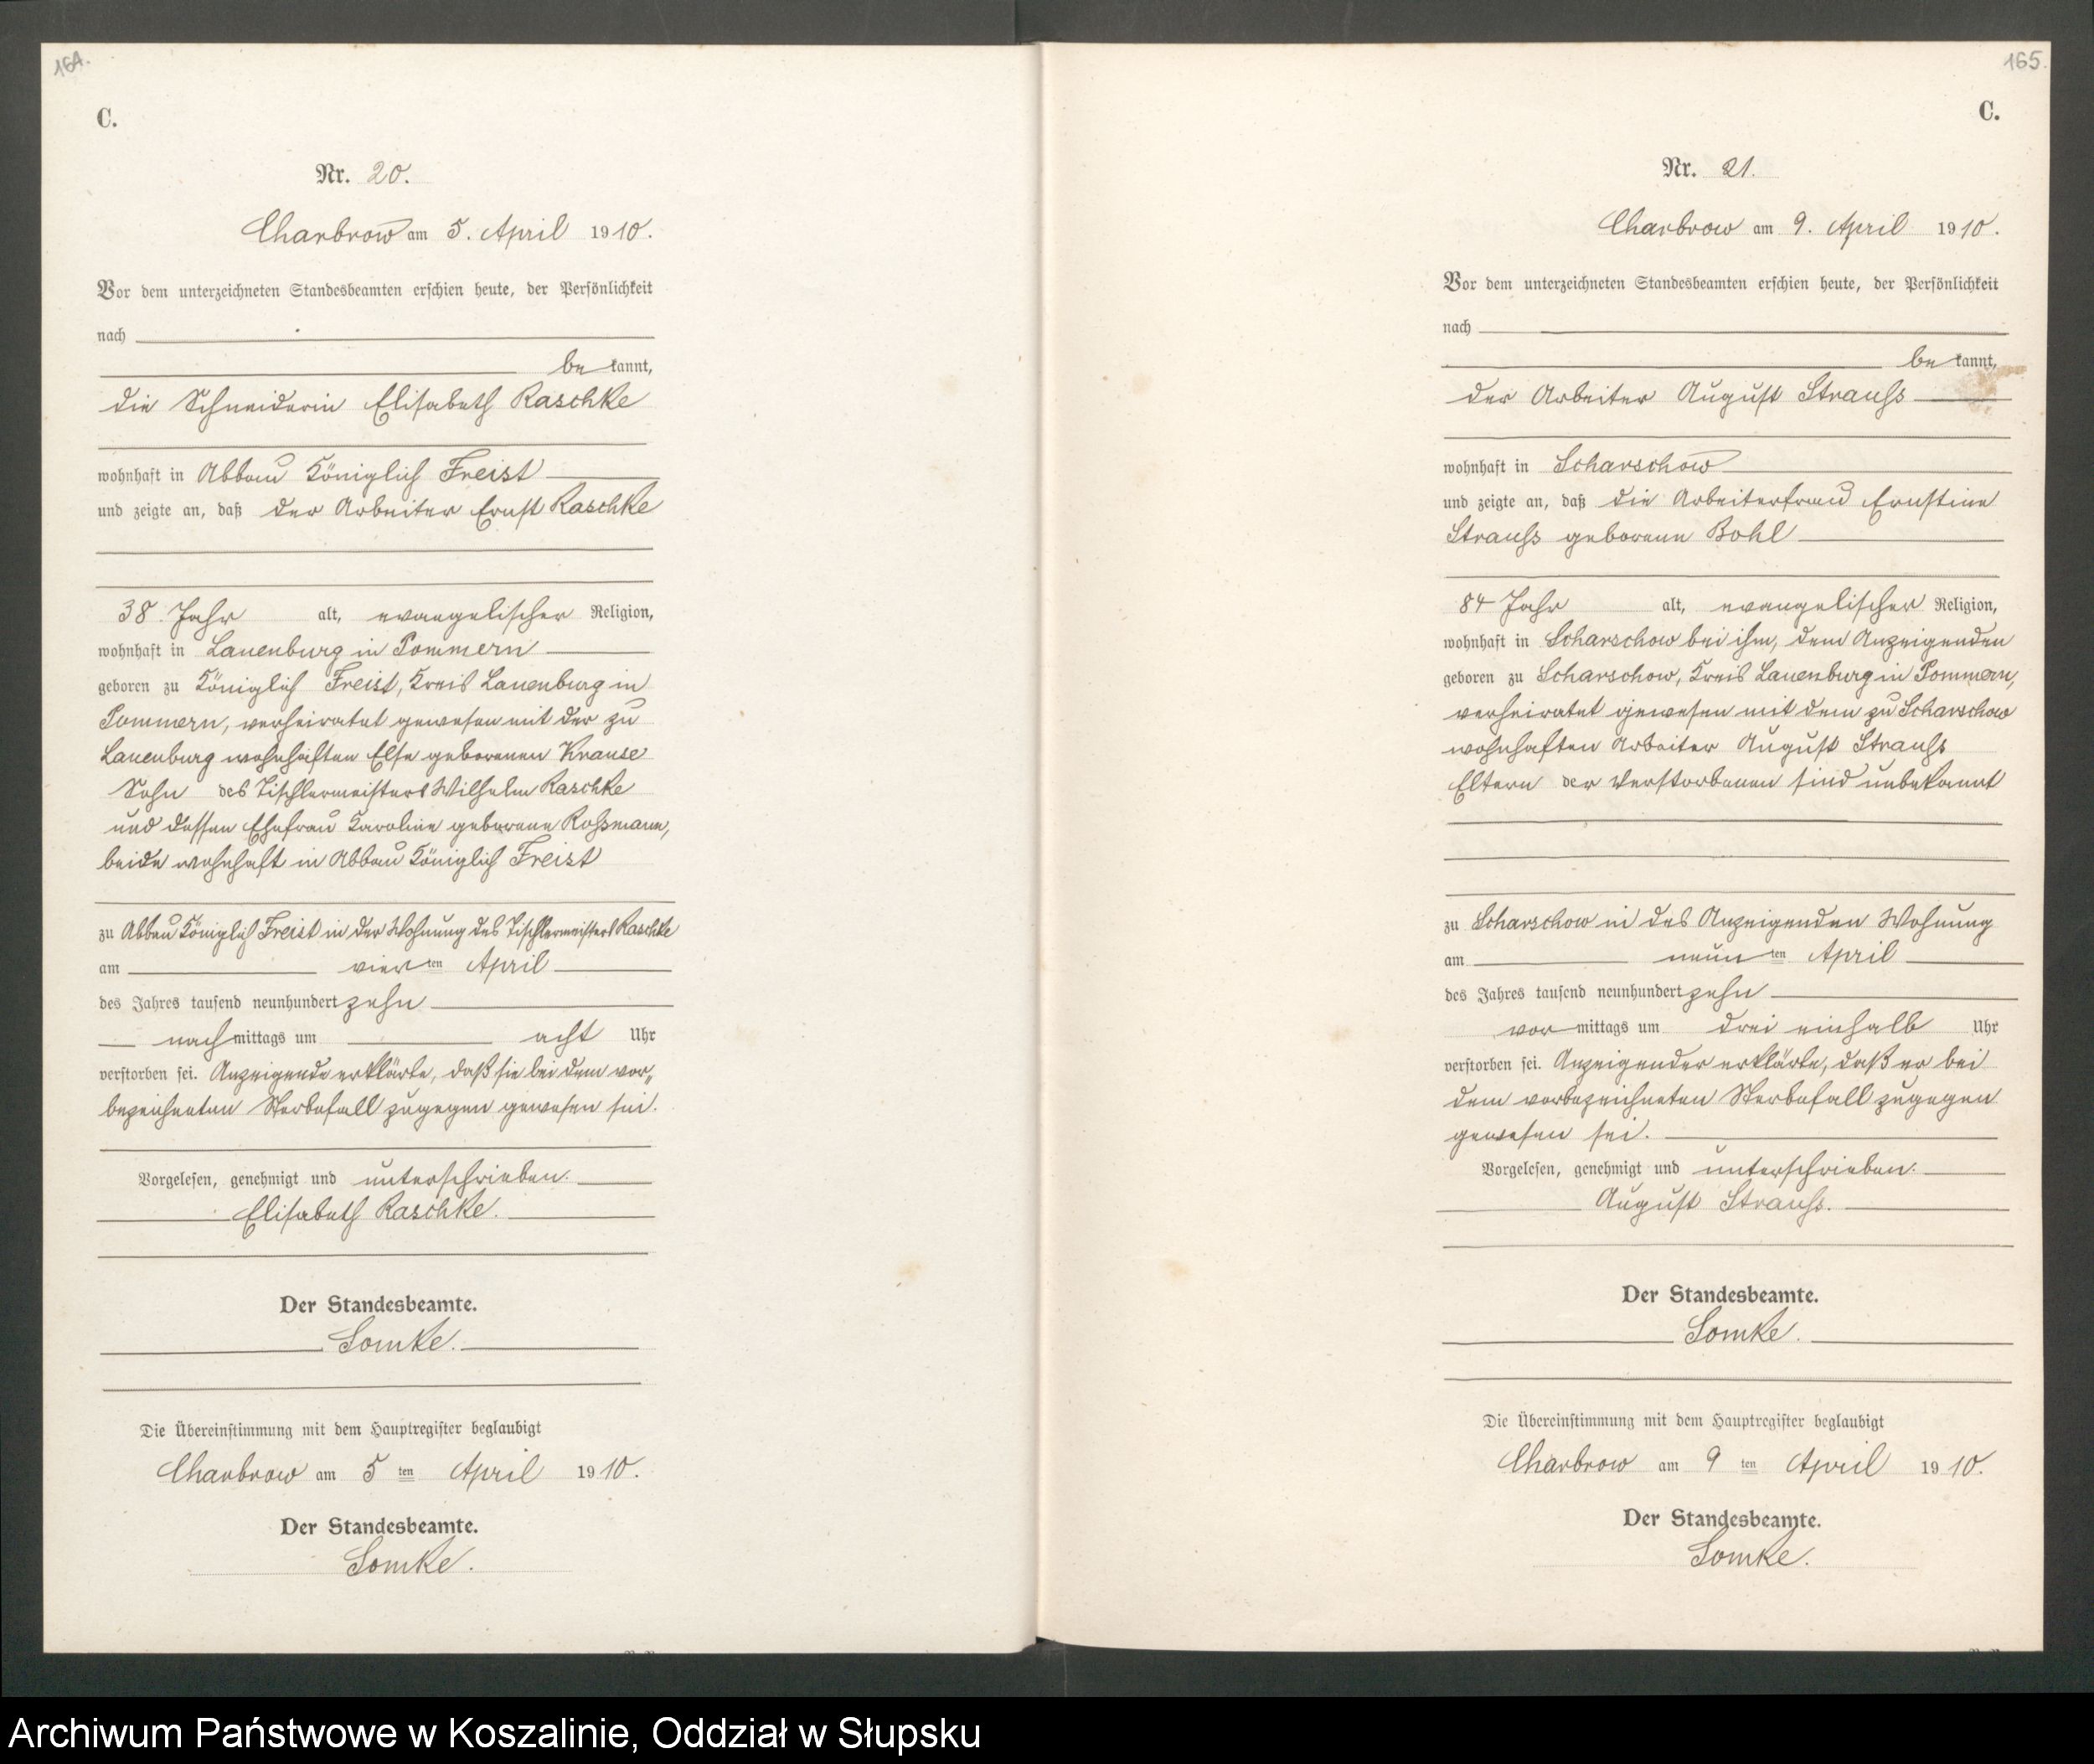 164.
C.
Nr. 20.
Charbrow am 5. April 1910.
Vor dem unterzeichneten Standesbeamten erschien heute, der Persönlichkeit
nach
be kannt,
die Schneiderin Elisabeth Raschke
wohnhaft in Abbau Königlich Freist
und zeigte an, daß der Arbeiter Ernst Raschke
38 Jahr alt, evangelischer Religion,
wohnhaft in Lauenburg in Pommern
geboren zu Königlich Freist, Kreis Lauenburg in
Pommern, verheiratet gewesen mit der zu
Lauenburg wohnhaften Else geborenen Krause
Sohn des Tischlermeisters Wilhelm Raschke
und dessen Ehefrau Karoline geborene Roßmann,
beide wohnhaft in Abbau Königlich Freist
zu Abbau Königlich Freist in der Wohnung des Tischlermeisters Raschke
am vier ten April
des Jahres tausend neunhundert zehn
nach mittags um acht Uhr
verstorben sei. Anzeigende erklärte, daß sie bei dem vor„
bezeichneten Sterbefall zugegen gewesen sei.
Vorgelesen, genehmigt und unterschrieben.
Elisabeth Raschke.
Der Standesbeamte.
Somke.
Die Übereinstimmung mit dem Hauptregister beglaubigt
Charbrow am 5 ten April 1910.
Der Standesbeamte.
Somke.
165.
C.
Nr. 21.
Charbrow am 9. April 1910.
Vor dem unterzeichneten Standesbeamten erschien heute, der Persönlichkeit
nach
be kannt,
der Arbeiter August Strauß
wohnhaft in Scharschow
und zeigte an, daß die Arbeiterfrau Ernstine
Strauß geborene Bohl
84 Jahr alt, evangelischer Religion,
wohnhaft in Scharschow bei ihm, dem Anzeigenden
geboren zu Scharschow, Kreis Lauenburg in Pommern,
verheiratet gewesen mit dem zu Scharschow
wohnhaften Arbeiter August Strauß
Eltern der Verstorbenen sind unbekannt
zu Scharschow in des Anzeigenden Wohnung
am neun ten April
des Jahres tausend neunhundert zehn
vor mittags um drei einhalb Uhr
verstorben sei. Anzeigender erklärte, daß er bei
dem vorbezeichneten Sterbefall zugegen
gewesen sei.
Vorgelesen, genehmigt und unterschrieben.
August Strauß.
Der Standesbeamte.
Somke.
Die Übereinstimmung mit dem Hauptregister beglaubigt
Charbrow am 9 ten April 1910.
Der Standesbeamte.
Somke.
Archiwum Państwowe w Koszalinie, Oddział w Słupsku